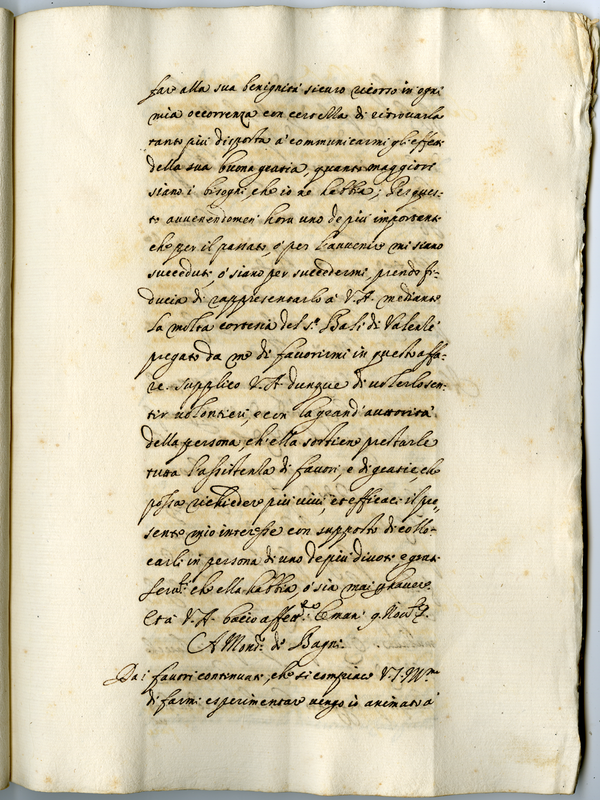 far alla sua benignità sicuro ricorso in ogni
mia occorrenza con certezza di ritrovarla
tanto più disposta à communicarmi gl'effetti
della sua buona gratia, quanto maggiori
siano i bisogni, che io ne habbia; Per ques-
to avvenendomen' hora uno de più importanti
che per il passato, ò per l'avvenire mi siano
succeduti, ò siano per succedermi, prendo fi-
ducia di rappresentarlo à V.A. mediante
la molta cortesia del s.r Balì di Valenzé
pregato da me di favorirmi in questo affa-
re. supplico V.A. dunque di volerlo sen-
tir volontieri, e con la grand'auttorità
della persona, ch'ella sostiene prestarle
tutta l'assistenza di favori, e di gratie, che
possa richieder più vivi, et efficaci il pre-
sente mio interesse con supposto di collo-
carli in persona di uno de più divoti e grati
ser.ri che ella habbia, ò sia mai p havere
Et à V.A. bacio affett.te le mani 9. Nov.
A Mons.r di Bagni.
Da i favori continuati, che si compiace V.S. Ill.ma
di farmi esperimentare vengo io animato à